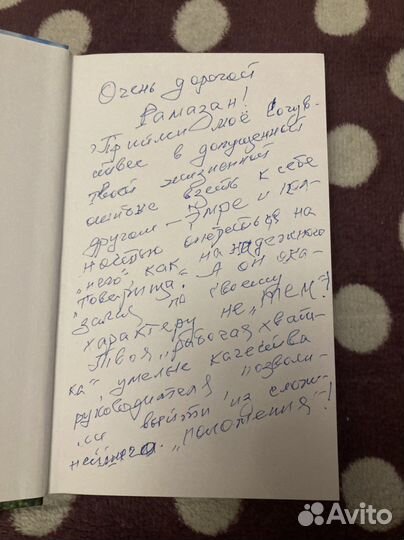 Очень дорогой
Рамазан!
Прийми моё сочув-
ствие в допущенной
твоей жизненной
ошибке взять к себе
другом - Эмре и пол-
ностью опереться на
"него", как на надежного
"товарища". А он ока-
зался по своему
характеру не "тем"?
Твоя "рабочая хват-
ка", умелые качества
руководителя позволи-
ли выйти из слож-
нейшего "положения"!
Avito